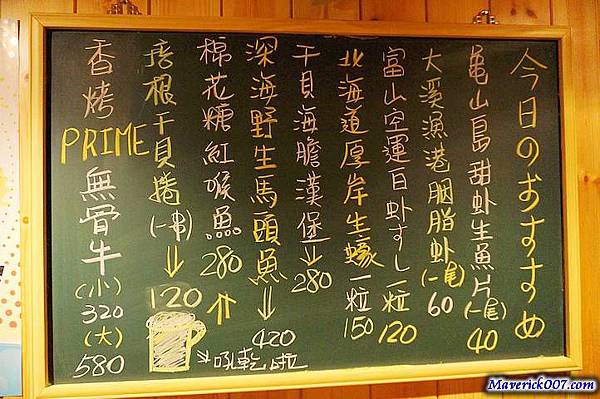 今日のおすすめ
亀山島甜虾生魚片(一尾)40
大溪漁港胭脂虾(一尾)60
富山空運白虾すし一粒120
北海道厚岸生蠔一粒150
干貝海膽漢堡→280
深海野生馬頭魚⇒420
棉花糖紅喉魚280
唐根干貝捲(一串)⇒120
香烤PRIME無骨牛(小)320(大)580
吼乾啦
Maverick007.com